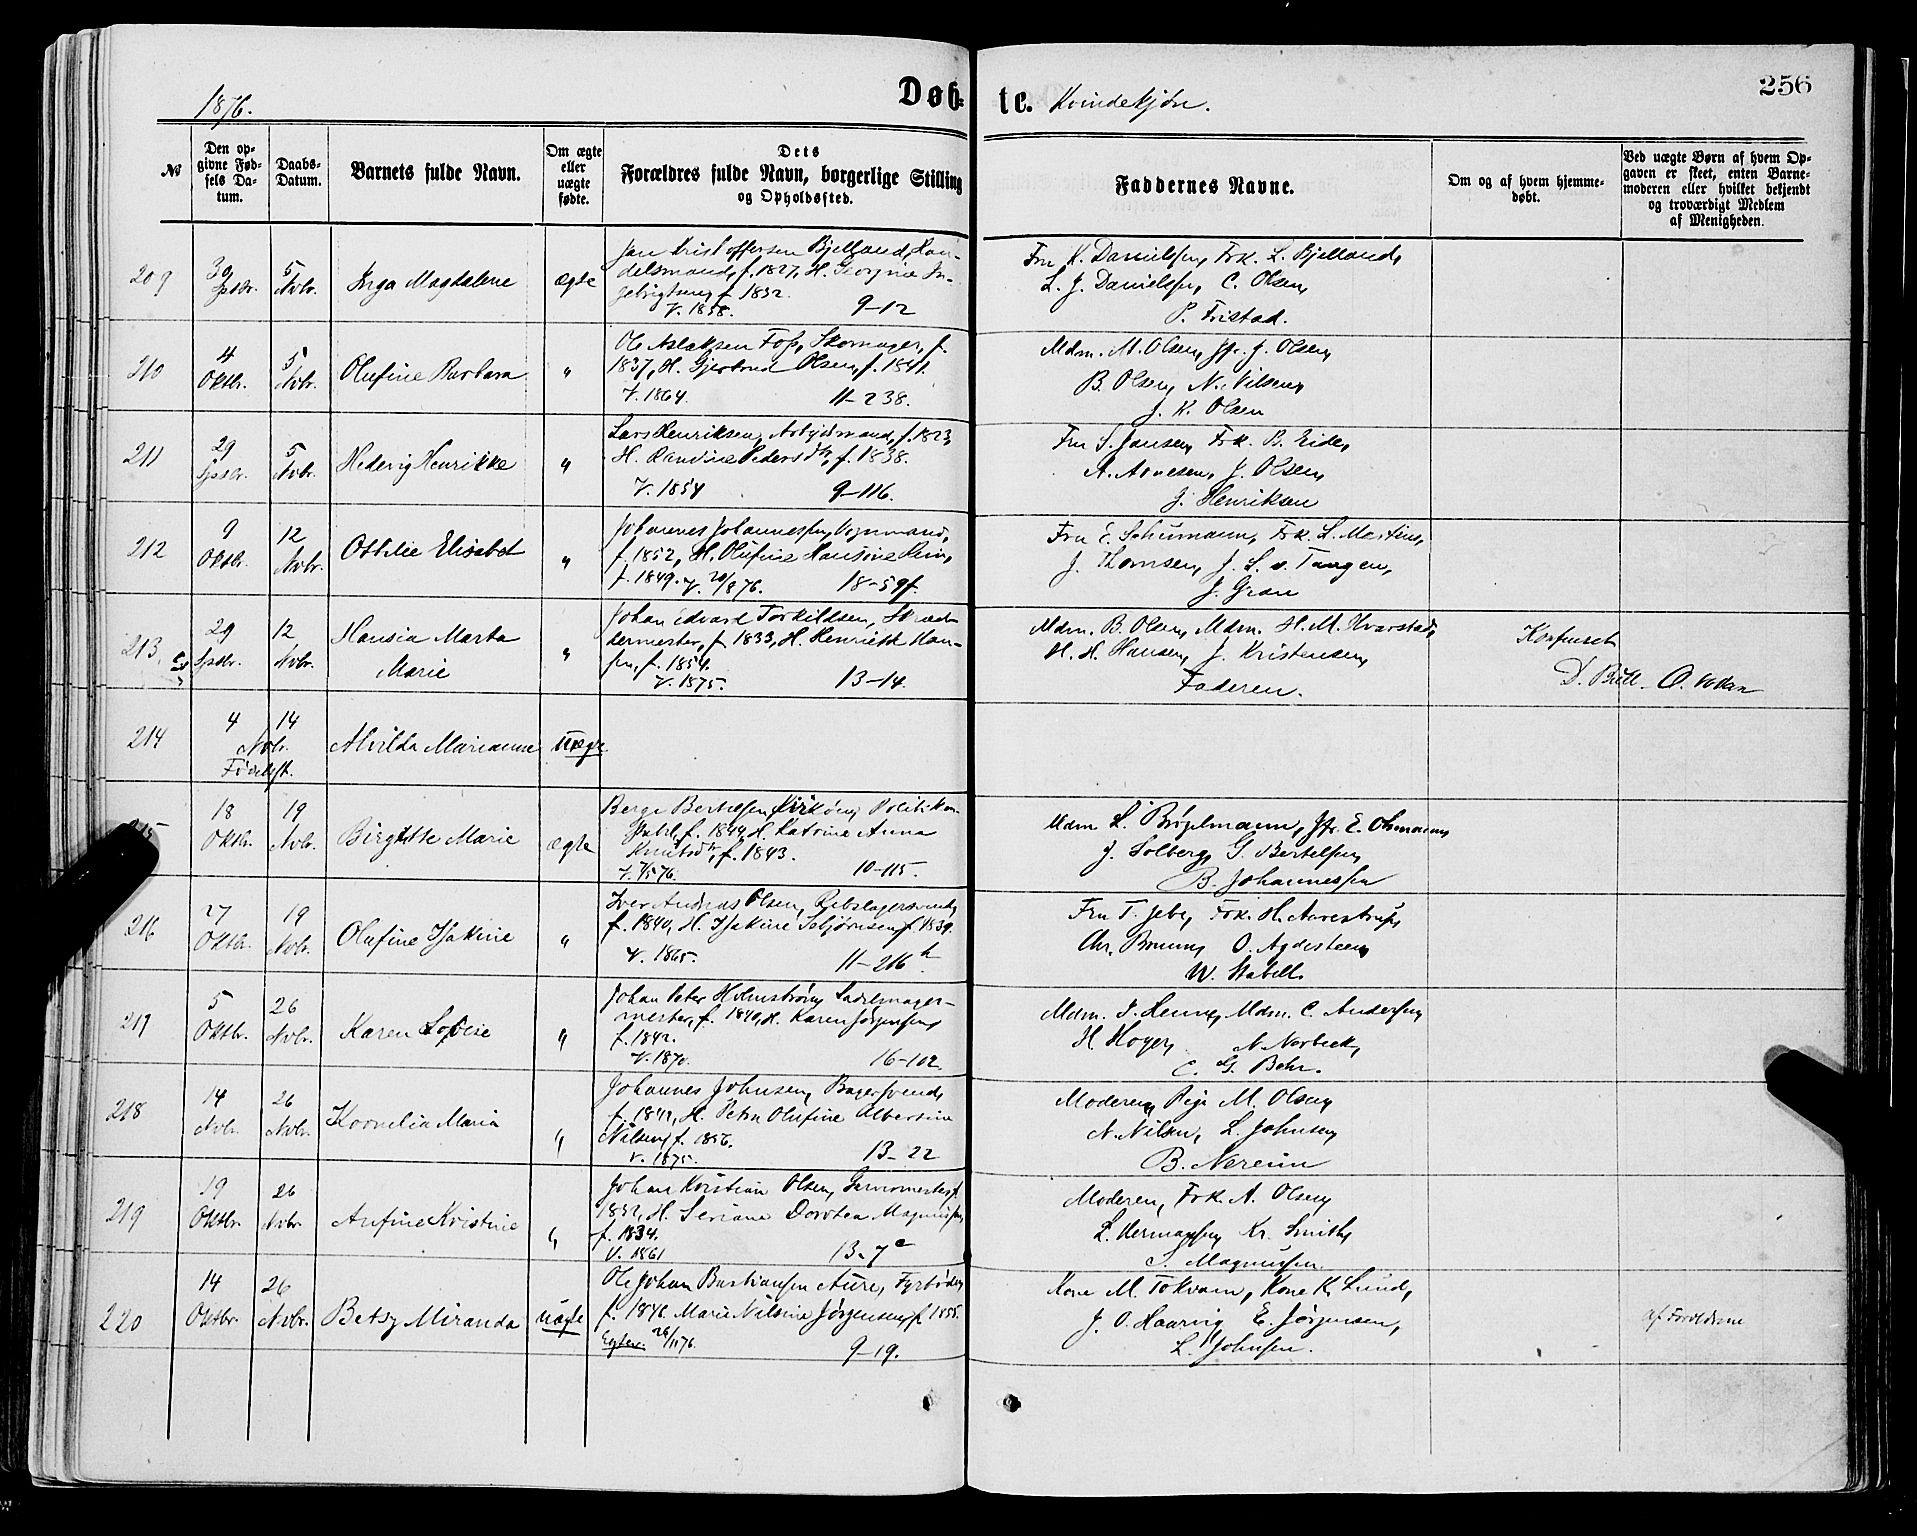 1876.
Døb-
te. Kvindekjøn.
256
№
Den op-
givne Fød-
sels Da-
tum.
Daabs-
Datum.
Barnets fulde Navn.
Om ægte
eller
uægte
fødte.
Dets
Forældres fulde Navn, borgerlige Stilling
og Opholdssted.
Faddernes Navne.
Om og af hvem hjemme-
døbt.
Ved uægte Børn af hvem Op-
gaven er skeet, enten Barne-
moderen eller hvilket bekjendt
og troværdigt Medlem
af Menigheden.
209
30 Spbr.
5 Nvbr.
Inga Magdalene
ægte
Jan Kristoffersen Bjelland, Han-
delsmand, f. 1827, H. Georgine In-
gebrigtsen, f. 1832.
V. 1858. 9-12
Fru K. Danielsen, Frk. L. Bjelland,
L. J. Danielsen, C. Olsen,
P. Fristad.
210
4 Oktbr.
5 Nvbr.
Olufine Barbara
"
Ole Aslaksen Foss, Skomager, f.
1837, H. Gjertrud Olsen, f. 1841.
V. 1864. 11-238.
Mdm. M. Olsen, Jfr. J. Olsen,
B. Olsen, N. Nilsen,
J. K. Olsen
211
29 Spbr.
5 Nvbr.
Hedevig Henrikke
"
Lars Henriksen, Arbejdsmand, f. 1823,
H. Randine Pedersdtr, f. 1838.
V. 1854 9-116.
Fru S. Jansen, Frk. B. Eide,
A. Arnesen, J. Olsen,
J. Henriksen
212
9 Oktbr.
12 Nvbr.
Ottilie Elisabet
"
Johannes Johannessen, Vognmand,
f. 1852, H. Olufine Hansine
f. 1849. V. 20/8 76. 18-59f.
Fru E. Schumann, Frk. L. Martins,
J. Thomsen, J. S. v. Tangen,
J. Gran
213
29 Spbr.
12 Nvbr.
Hansia Marta
Marie
"
Johan Edvard Torkildsen, Skræd-
dermester, f. 1833, H. Henriette Han-
sen, f. 1854.
V. 1875. 13-14.
Mdm. B. Olsen, Mdm. H. M. Kvarstad,
H. H. Hansen, J. Kristensen,
Faderen.
D. Bull.
214
4 14
Nvbr.
Fødselsst.
Alvilda Marianne
Uægte
18 Oktbr.
19 Nvbr.
Birgitte Marie
ægte
Berge Bertelsen Kirkøen, Politikon-
stabel, f. 1849, H. Katrine Anna
Knutsdtr, f. 1843.
V. 7/5 76. 10-115.
Mdm L. Brøgelmann, Jfr. E. Ohmann,
J. Solberg, G. Bertelsen,
B. Johannessen
216
27 Oktbr.
19 Nvbr.
Olufine Isakine
"
Iver Andreas Olsen, Rebslagersvend,
f. 1840, H. Isakine Isbjørnsen, f. 1839.
V. 1865. 11-216h.
Fru T. Jebe, Frk. H. Aarestrup,
Chr. Bruun, O. Agdesteen,
W. Stabell.
217
5 Oktbr.
26 Nvbr.
Karen Lovise
"
Johan Peter Holmstrøm, Sadelmager-
mester, f. 1840, H. Karen Jørgensen,
f. 1842.
V. 1870. 16-102.
Mdm. J. Henne, Mdm. C. Andersen,
H. Hoyer, N. Norbeck,
C. G. Behr.
218
14 Nvbr.
26 Nvbr.
Kornelia Maria
"
Johannes Johnsen, Bagersvend,
f. 1849, H. Petra Olufine Albertine
Nilsen, f. 1856.
V. 1875. 13-22
Moderen, Pige M. Olsen,
N. Nilsen, L. Johnsen,
B. Nereim
219
19 Oktbr.
26 Nvbr.
Anfine Kristine
"
Johan Kristian Olsen, Garvermester, f.
1832, H. Seriane Dorotea Magnussen,
f. 1834.
V. 1861 13-7c
Moderen, Frk. A. Olsen,
L. Hermansen, Kr. Smith,
S. Magnussen
220
14 Oktbr.
26 Nvbr.
Betsy Miranda
uægte
Ole Johan Bastiansen Aure, Fyrbøder,
f. 1846. Marie Nilsine Jørgensen, f. 1855.
Egtev. 26/11 76. 9-19.
Kone M. Tokvam, Kone K. Lund,
J. O. Haarvig, E. Jørgensen,
L. Johnsen.
af Forældrene